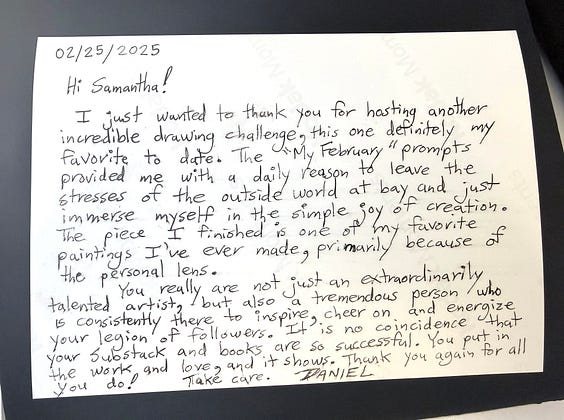 02/25/2025
Hi Samantha!
I just wanted to thank you for hosting another
incredible drawing challenge, this one definitely my
favorite to date. The "My February" prompts
provided me with a daily reason to leave the
stresses of the outside world at bay and just
immerse myself in the simple joy of creation.
The piece I finished is one of my favorite
paintings I've ever made, primarily because of
the personal lens.
You really are not just an extraordinarily
talented artist, but also a tremendous person who
is consistently there to inspire, cheer on and energize
your legion of followers. It is no coincidence that
your Substack and books are so successful. You put in
the work, and love, and it shows. Thank you again for all
you do! Take care. DANIEL